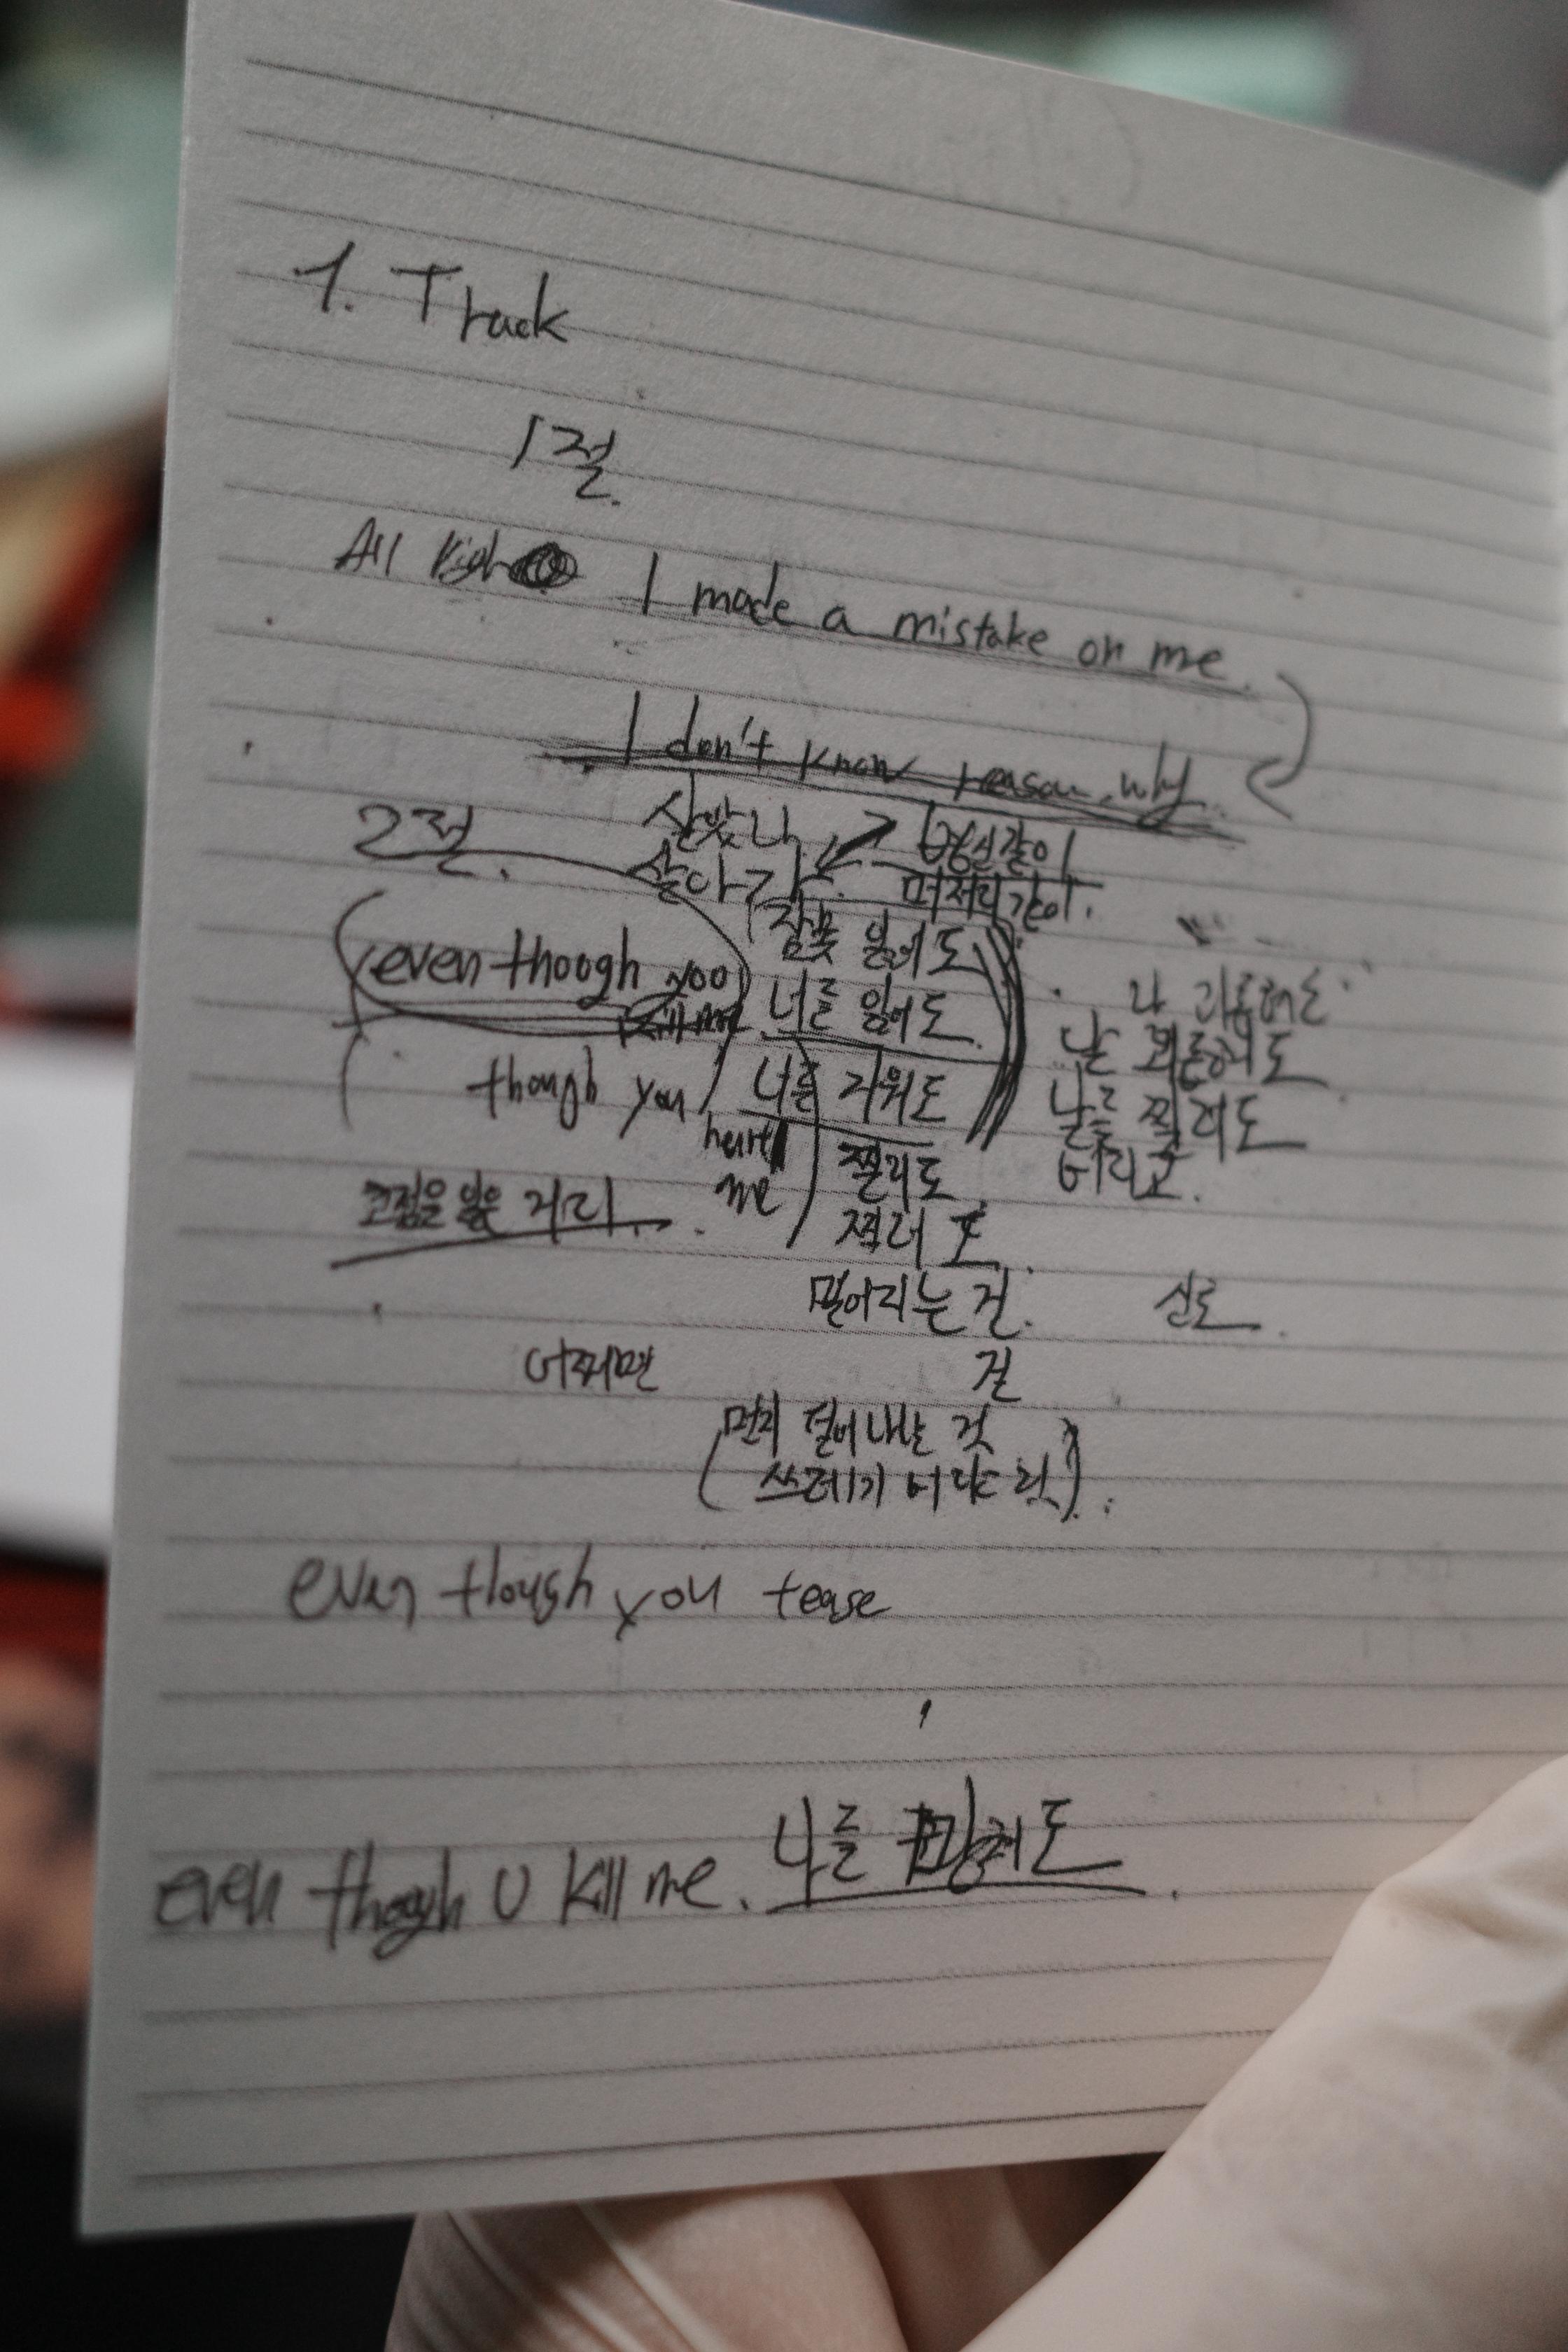 1. Track
1절.
All Righ I made a mistake on me.
I don't know reason why
2절. 살았나 병신같이
살아가 머저리같이.
잘못 잃어도
even though you 너를 잃어도.
kill me
날 괴롭혀도
though you 너를 지워도
heart me
날 찔러도
버리고.
찔러도
초점을 잃은 거리.
찍어도.
밀어리는 건. 신로.
어쩌면 걸
먼지 털어내는 것
쓰레기
even though you tease
even though U kill me. 나를 망쳐도.